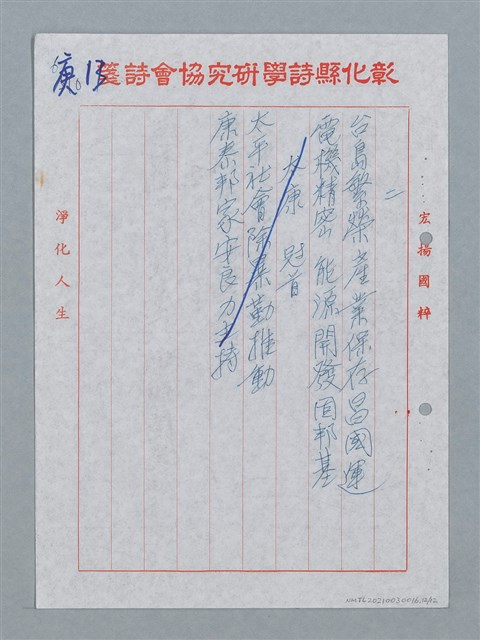 彰化縣詩學硏究協會詩箋
庚13
宏揚國粹
二
台島繁榮產業保存昌國運
電機精密能源開發固邦基
太康 冠首
太平社會除暴勤推動
康泰邦家安良力主持
淨化人生